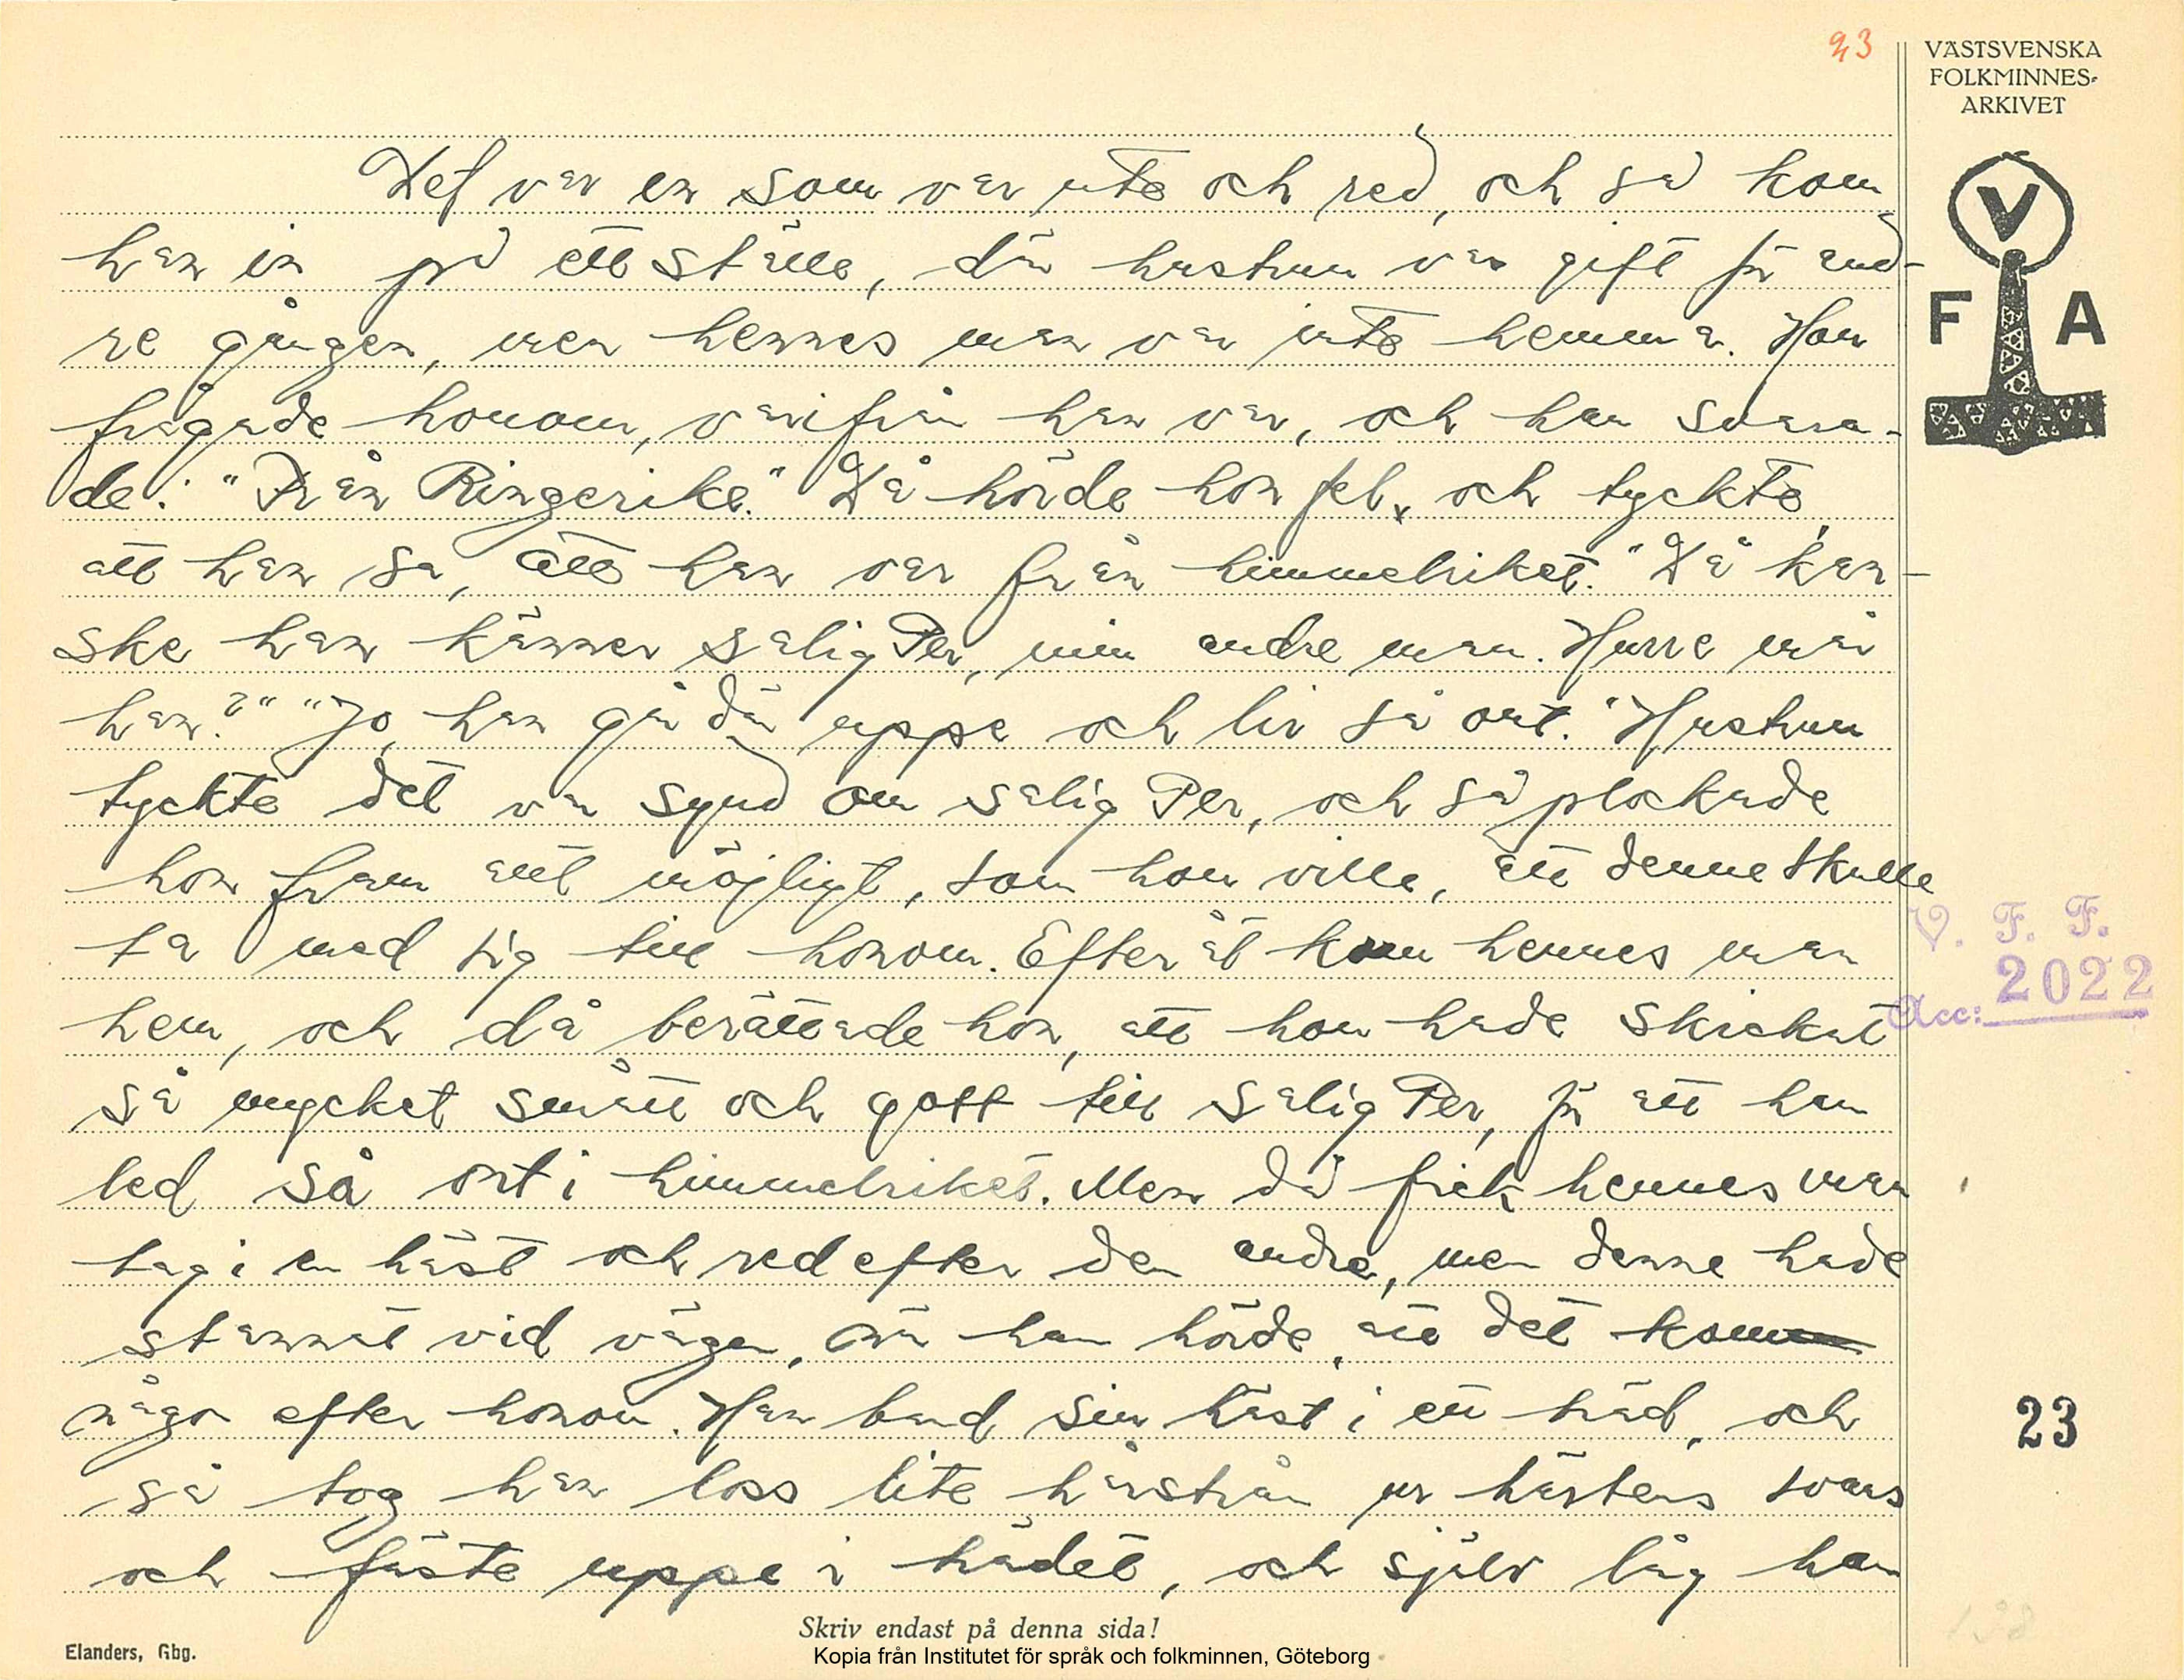 23
VÄSTSVENSKA
FOLKMINNES-
ARKIVET
V
F A
Det var en som var ute och red, och så kom
han in på ett ställe, där hustrun var gift för and-
re gången, men hennes man var inte hemma. Hon
frågade honom, varifrån han var, och han svara-
de: "Från Ringerike." Då hörde hon fel, och tyckte,
att han sa, att han var från himmelriket. "Då kan-
ske han känner salig Per, min andre man. Hurre mår
han?" "Jo, han går där uppe och lir så ont." Hustrun
tyckte det var synd om salig Per, och så plockade
hon fram allt möjligt, som hon ville, att denne skulle
ta med sig till honom. Efteråt kom hennes man
hem, och då berättade hon, att hon hade skickat
så mycket smått och gott till salig Per, för att han
led så ont i himmelriket. Men då fick hennes man
tag i en häst och red efter den andre, men denne hade
stannat vid vägen, när han hörde, att det kom
någon efter honom. Han band sin häst i ett träd, och
så tog han loss lite hårstrån ur hästens svans
och fäste uppe i trädet, och själv låg han
V. F. F.
Acc: 2022
23
138
Skriv endast på denna sida!
Elanders, Gbg.
Kopia från Institutet för språk och folkminnen, Göteborg